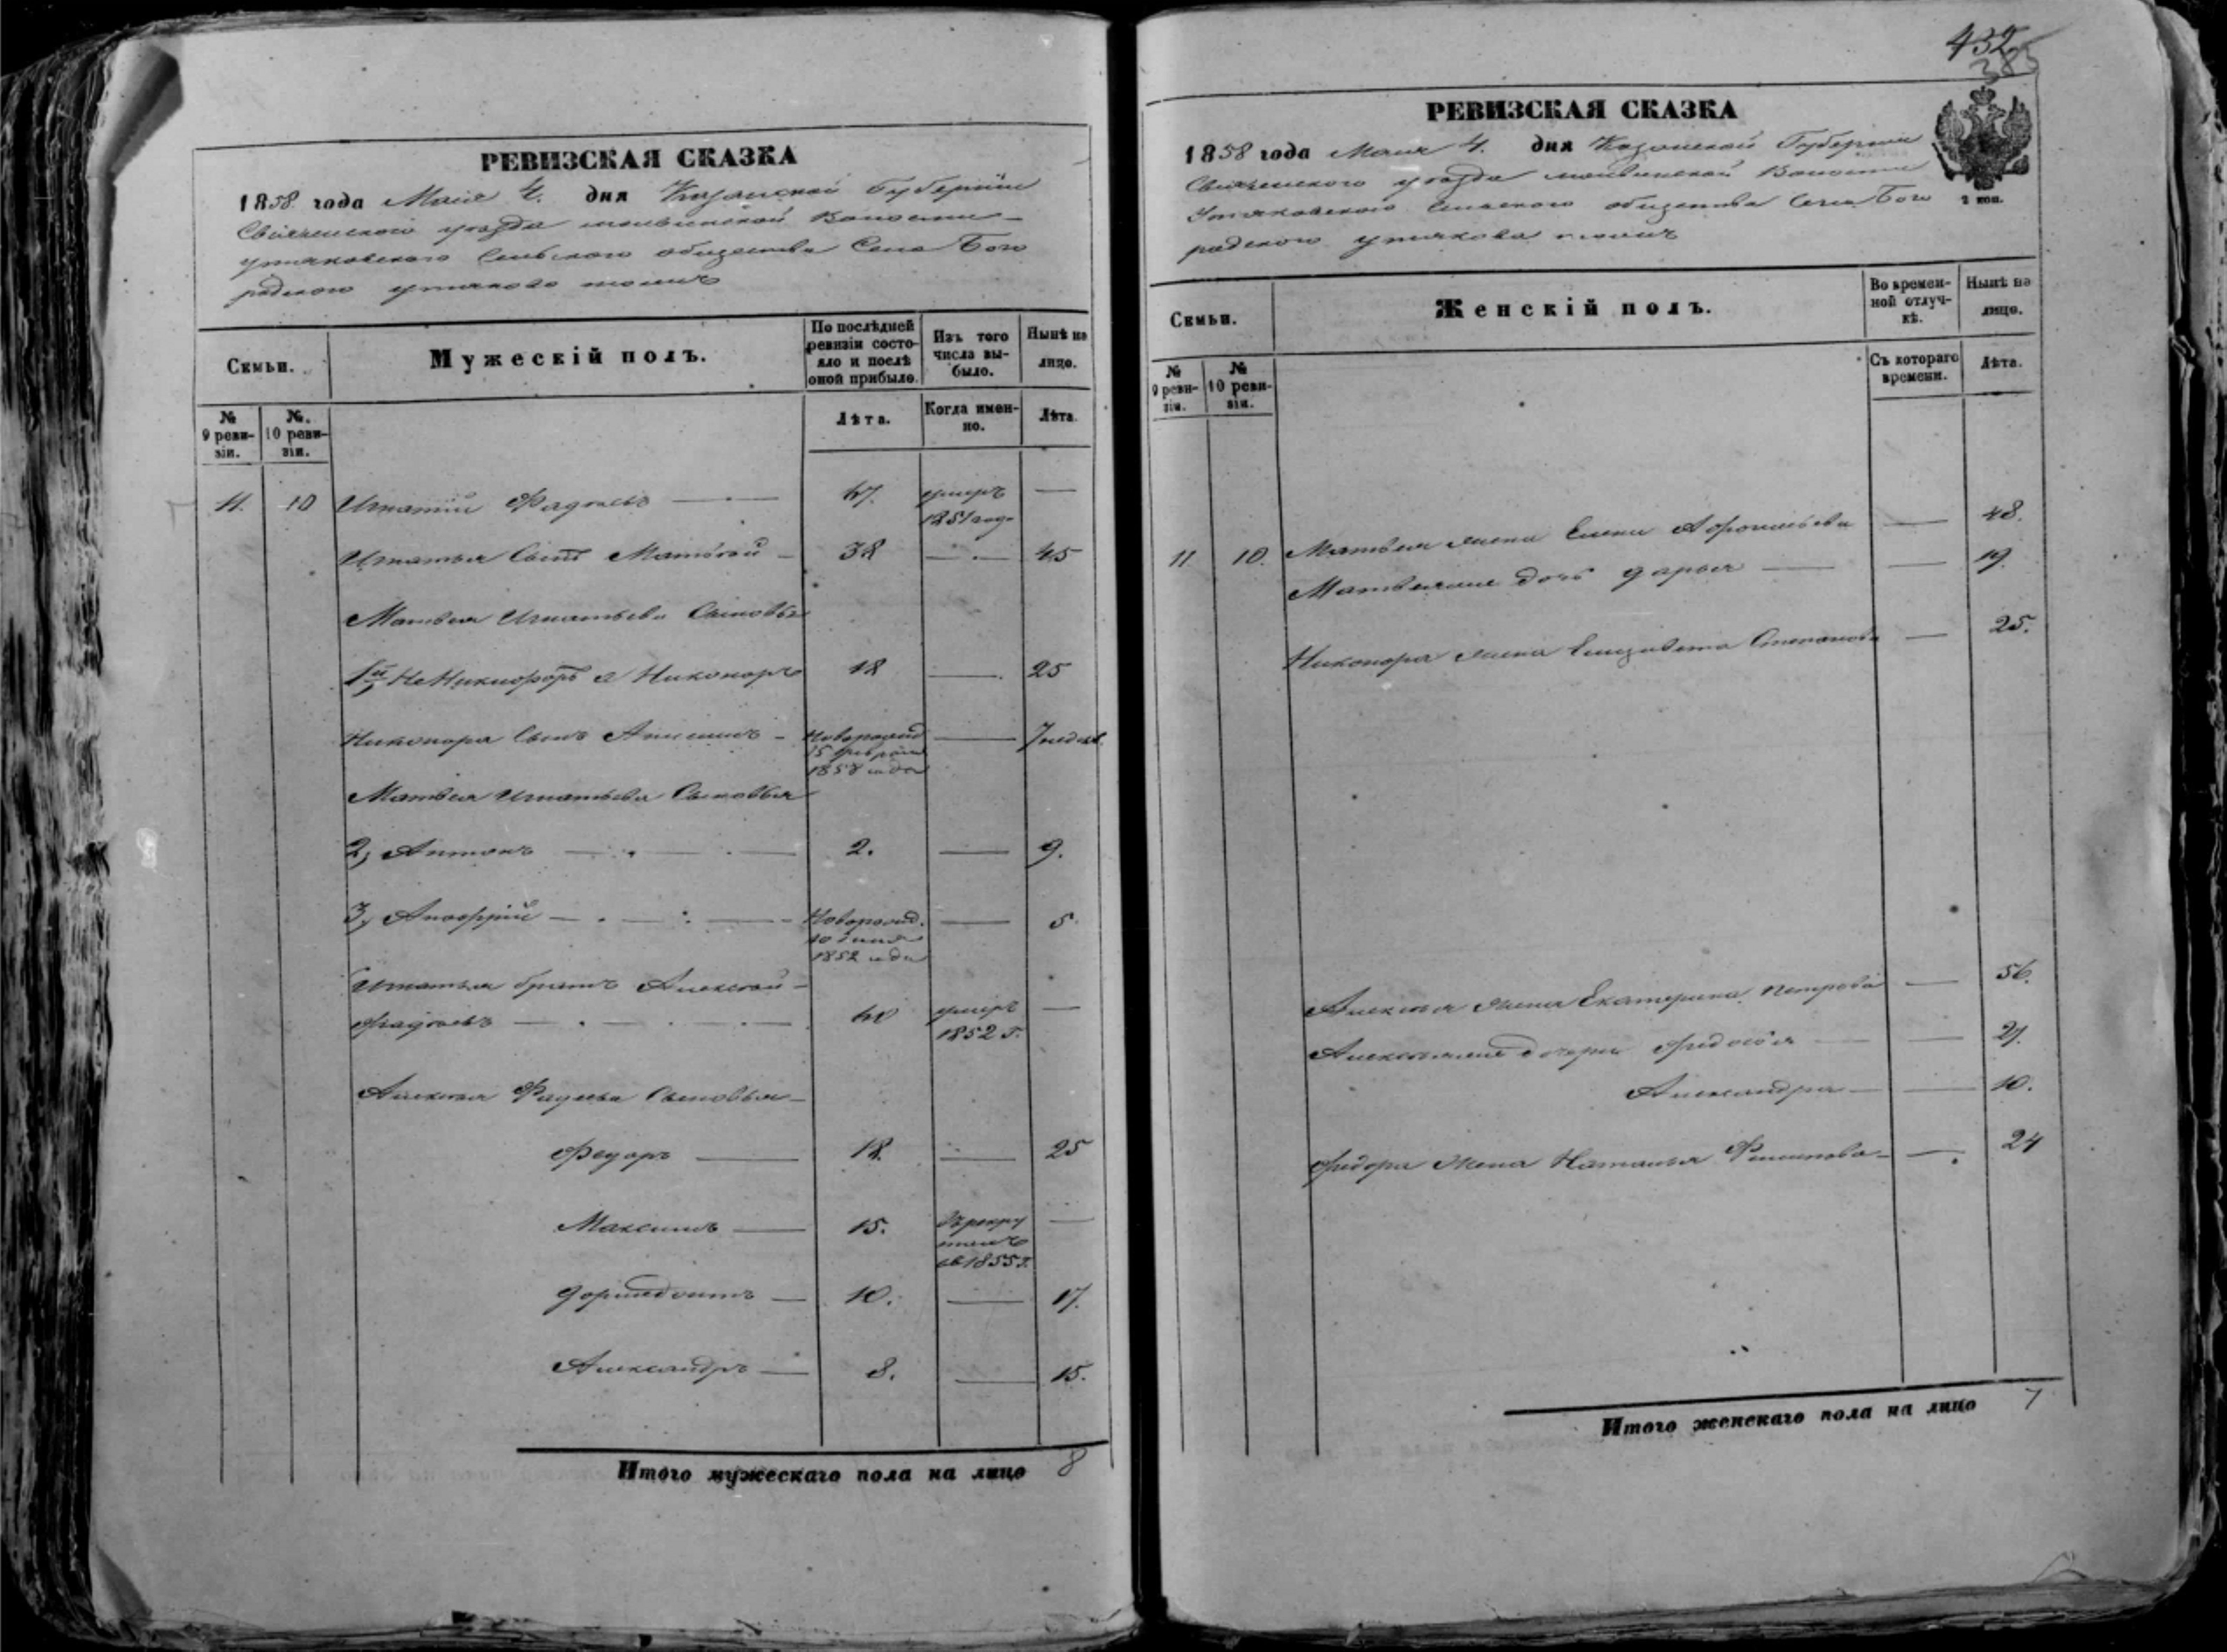 432
385
РЕВИЗСКАЯ СКАЗКА
1858 года Маія 4. дня Казанской Губерніи
Свіяжскаго уѣзда Волости
утяковскаго Сельскаго общества Села Бого
родскаго утяково тожъ
Семьи.
Мужескій полъ.
По послѣдней ревизіи состояло и послѣ оной прибыло.
Изъ того числа выбыло.
Нынѣ на лицо.
№ 9 ревизіи.
№. 10 ревизіи.
Лѣта.
Когда именно.
Лѣта.
11. 10 Игнатій Фадѣевъ — 67. умеръ —
1851 года
Игнатья Сынъ Матвѣй — 38 — 45
Матвея Игнатьева Сыновья
1й Никифоръ а Никоноръ 18 — 25
Никонора Сынъ Анисимъ — Новорожд. — 7 недель
15 февраля
1858 года
Матвея Игнатьева Сыновья
2, Антонъ — 2. — 9.
3, — Новорожд. — 5
1852 года
Игнатья братъ Алексѣй —
Фадѣевъ — умеръ —
1852 г.
Алексѣя Фадеева Сыновья —
Федоръ — 18. — 25
Максимъ — 15. Въ рекру —
тахъ
съ 1855 г.
Дормедонтъ — 10. — 17.
Александръ — 8. — 15.
Итого мужескаго пола на лицо 8
РЕВИЗСКАЯ СКАЗКА
1858 года Маія 4. дня Казанской Губерніи
Свіяжскаго уѣзда Волости
Утяковскаго Сельскаго общества Села Бого
родскаго утякова тожъ
2 коп.
Семьи.
Женскій полъ.
Во временной отлучкѣ.
Нынѣ на лицо.
№ 9 ревизіи.
№ 10 ревизіи.
Съ котораго времени.
Лѣта.
11 10. Матвея жена Елена — 48.
Матвея дочь Дарья — 19.
Никонора жена Елизавета Степанова — 25.
Алексѣя жена Екатерина Петрова — 56.
Алексѣя дочери Федосья — 21.
Александра — 10.
Федора жена Наталья Филипова — 24
Итого женскаго пола на лицо 7